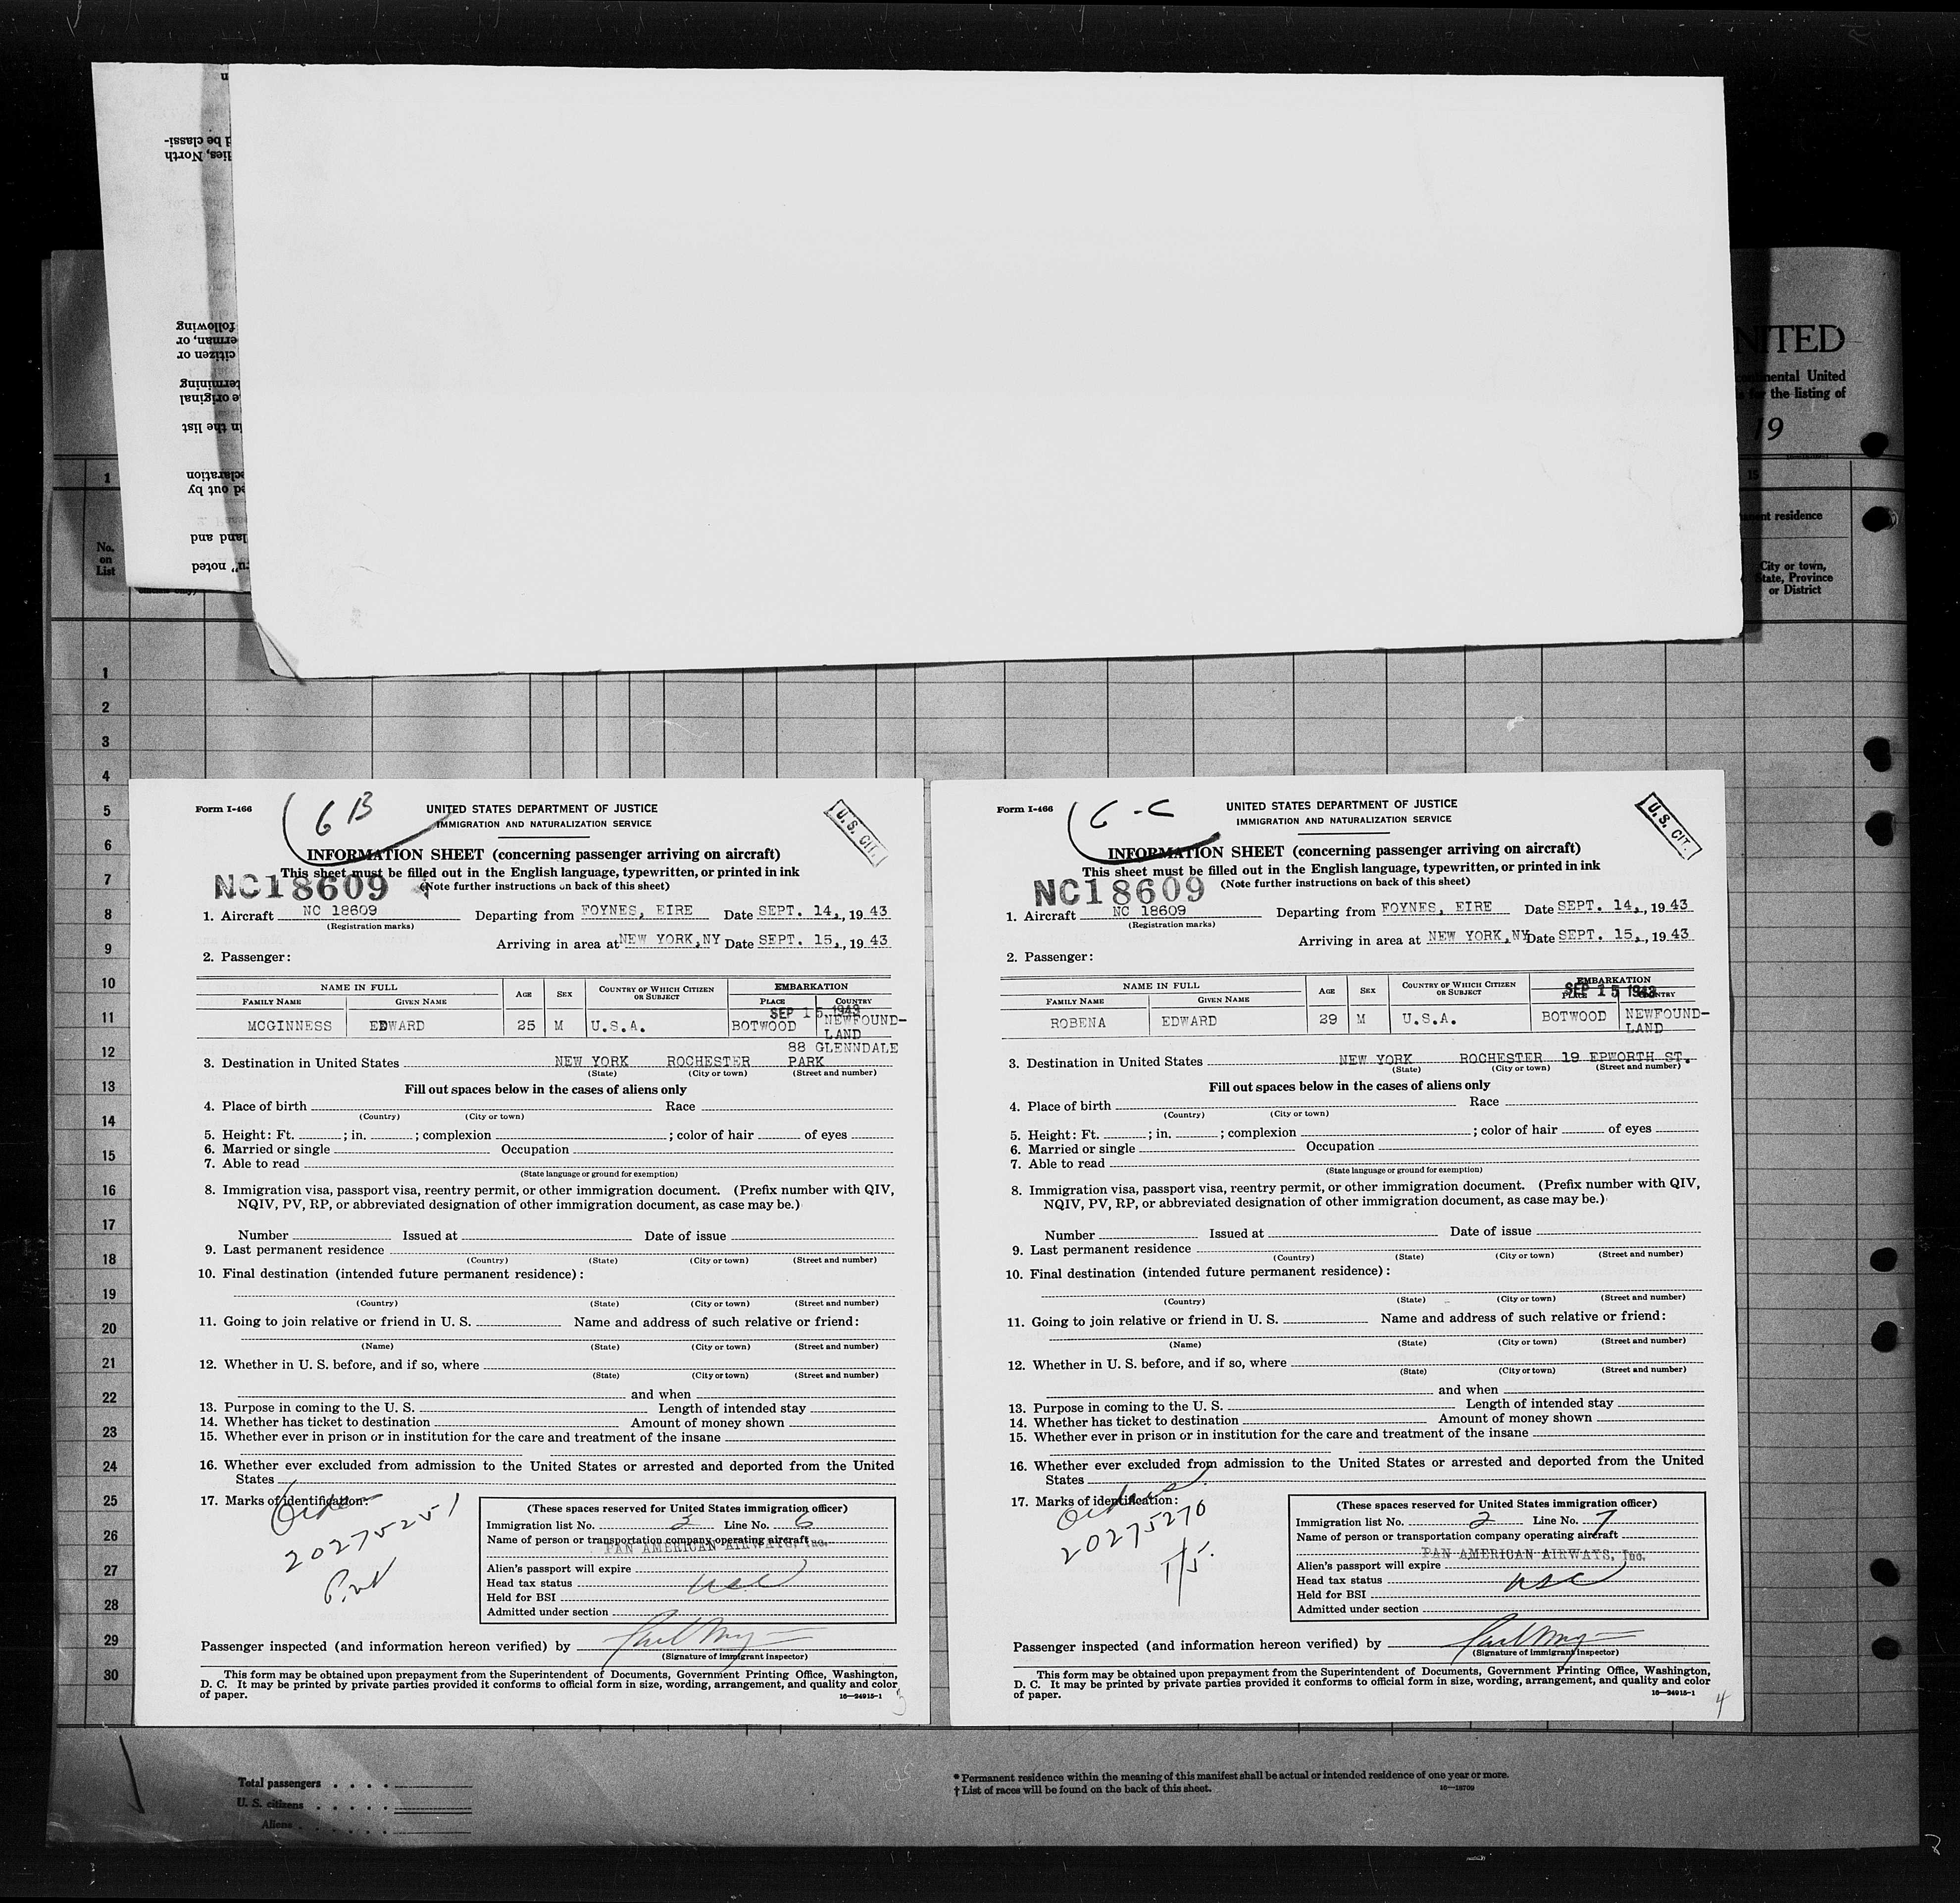 NITED
continental United
for the listing of
19
15
permanent residence
City or town,
State, Province
or District
1
No.
on
List
n
d be classi-
lies, North
following
erman, or
citizen or
termining
e original
in the list
eclaration
ed out by
land and
noted
1
2
3
4
5
6
7
8
9
10
11
12
13
14
15
16
17
18
19
20
21
22
23
24
25
26
27
28
29
30
Form I-466
6 B
UNITED STATES DEPARTMENT OF JUSTICE
IMMIGRATION AND NATURALIZATION SERVICE
U.S. CIT.
INFORMATION SHEET (concerning passenger arriving on aircraft)
This sheet must be filled out in the English language, typewritten, or printed in ink
NC18609
(Note further instructions on back of this sheet)
1. Aircraft NC 18609 Departing from FOYNES, EIRE Date SEPT. 14, , 19 43
(Registration marks)
Arriving in area at NEW YORK,NY Date SEPT. 15, , 19 43
2. Passenger:
NAME IN FULL
FAMILY NAME GIVEN NAME AGE SEX COUNTRY OF WHICH CITIZEN OR SUBJECT EMBARKATION PLACE COUNTRY
SEP 15 1943
MCGINNESS EDWARD 25 M U.S.A. BOTWOOD NEWFOUND-
LAND
88 GLENNDALE
3. Destination in United States NEW YORK ROCHESTER PARK
(State) (City or town) (Street and number)
Fill out spaces below in the cases of aliens only
4. Place of birth Race
(Country) (City or town)
5. Height: Ft. ; in. ; complexion ; color of hair of eyes
6. Married or single Occupation
7. Able to read
(State language or ground for exemption)
8. Immigration visa, passport visa, reentry permit, or other immigration document. (Prefix number with QIV,
NQIV, PV, RP, or abbreviated designation of other immigration document, as case may be.)
Number Issued at Date of issue
9. Last permanent residence
(Country) (State) (City or town) (Street and number)
10. Final destination (intended future permanent residence):
(Country) (State) (City or town) (Street and number)
11. Going to join relative or friend in U. S. Name and address of such relative or friend:
(Name) (State) (City or town) (Street and number)
12. Whether in U. S. before, and if so, where
(State) (City or town) (Street and number)
and when
13. Purpose in coming to the U. S. Length of intended stay
14. Whether has ticket to destination Amount of money shown
15. Whether ever in prison or in institution for the care and treatment of the insane
16. Whether ever excluded from admission to the United States or arrested and deported from the United
States
17. Marks of identification:
20275251
Pvt
(These spaces reserved for United States immigration officer)
Immigration list No. 2 Line No. 6
Name of person or transportation company operating aircraft
PAN AMERICAN AIRWAYS, Inc.
Alien's passport will expire
Head tax status usc
Held for BSI
Admitted under section
Passenger inspected (and information hereon verified) by
(Signature of immigrant inspector)
This form may be obtained upon prepayment from the Superintendent of Documents, Government Printing Office, Washington,
D. C. It may be printed by private parties provided it conforms to official form in size, wording, arrangement, and quality and color
of paper.
16—24915-1
3
Form I-466
6 - C
UNITED STATES DEPARTMENT OF JUSTICE
IMMIGRATION AND NATURALIZATION SERVICE
U.S. CIT.
INFORMATION SHEET (concerning passenger arriving on aircraft)
This sheet must be filled out in the English language, typewritten, or printed in ink
NC18609
(Note further instructions on back of this sheet)
1. Aircraft NC 18609 Departing from FOYNES, EIRE Date SEPT. 14, , 19 43
(Registration marks)
Arriving in area at NEW YORK,NY Date SEPT. 15, , 19 43
2. Passenger:
NAME IN FULL
FAMILY NAME GIVEN NAME AGE SEX COUNTRY OF WHICH CITIZEN OR SUBJECT EMBARKATION PLACE COUNTRY
SEP 15 1943
ROBENA EDWARD 29 M U.S.A. BOTWOOD NEWFOUND-
LAND
3. Destination in United States NEW YORK ROCHESTER 19 EPWORTH ST.
(State) (City or town) (Street and number)
Fill out spaces below in the cases of aliens only
4. Place of birth Race
(Country) (City or town)
5. Height: Ft. ; in. ; complexion ; color of hair of eyes
6. Married or single Occupation
7. Able to read
(State language or ground for exemption)
8. Immigration visa, passport visa, reentry permit, or other immigration document. (Prefix number with QIV,
NQIV, PV, RP, or abbreviated designation of other immigration document, as case may be.)
Number Issued at Date of issue
9. Last permanent residence
(Country) (State) (City or town) (Street and number)
10. Final destination (intended future permanent residence):
(Country) (State) (City or town) (Street and number)
11. Going to join relative or friend in U. S. Name and address of such relative or friend:
(Name) (State) (City or town) (Street and number)
12. Whether in U. S. before, and if so, where
(State) (City or town) (Street and number)
and when
13. Purpose in coming to the U. S. Length of intended stay
14. Whether has ticket to destination Amount of money shown
15. Whether ever in prison or in institution for the care and treatment of the insane
16. Whether ever excluded from admission to the United States or arrested and deported from the United
States
17. Marks of identification:
20275270
T/5.
(These spaces reserved for United States immigration officer)
Immigration list No. 2 Line No. 7
Name of person or transportation company operating aircraft
PAN AMERICAN AIRWAYS, Inc.
Alien's passport will expire
Head tax status usc
Held for BSI
Admitted under section
Passenger inspected (and information hereon verified) by
(Signature of immigrant inspector)
This form may be obtained upon prepayment from the Superintendent of Documents, Government Printing Office, Washington,
D. C. It may be printed by private parties provided it conforms to official form in size, wording, arrangement, and quality and color
of paper.
16—24915-1
4
Total passengers
U. S. citizens
Aliens
* Permanent residence within the meaning of this manifest shall be actual or intended residence of one year or more.
† List of races will be found on the back of this sheet.
16—18709